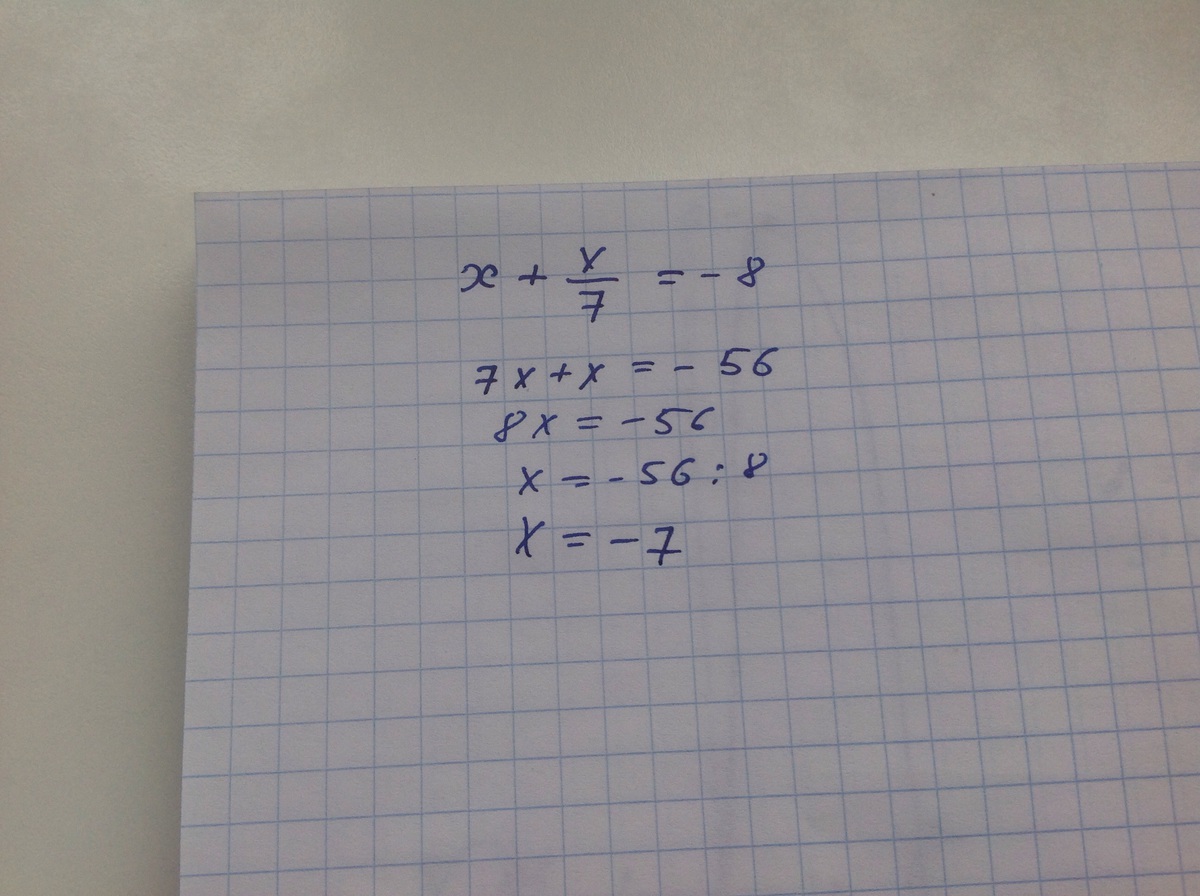 x + x/7 = - 8
7x + x = - 56
8x = - 56
x = - 56 : 8
x = - 7